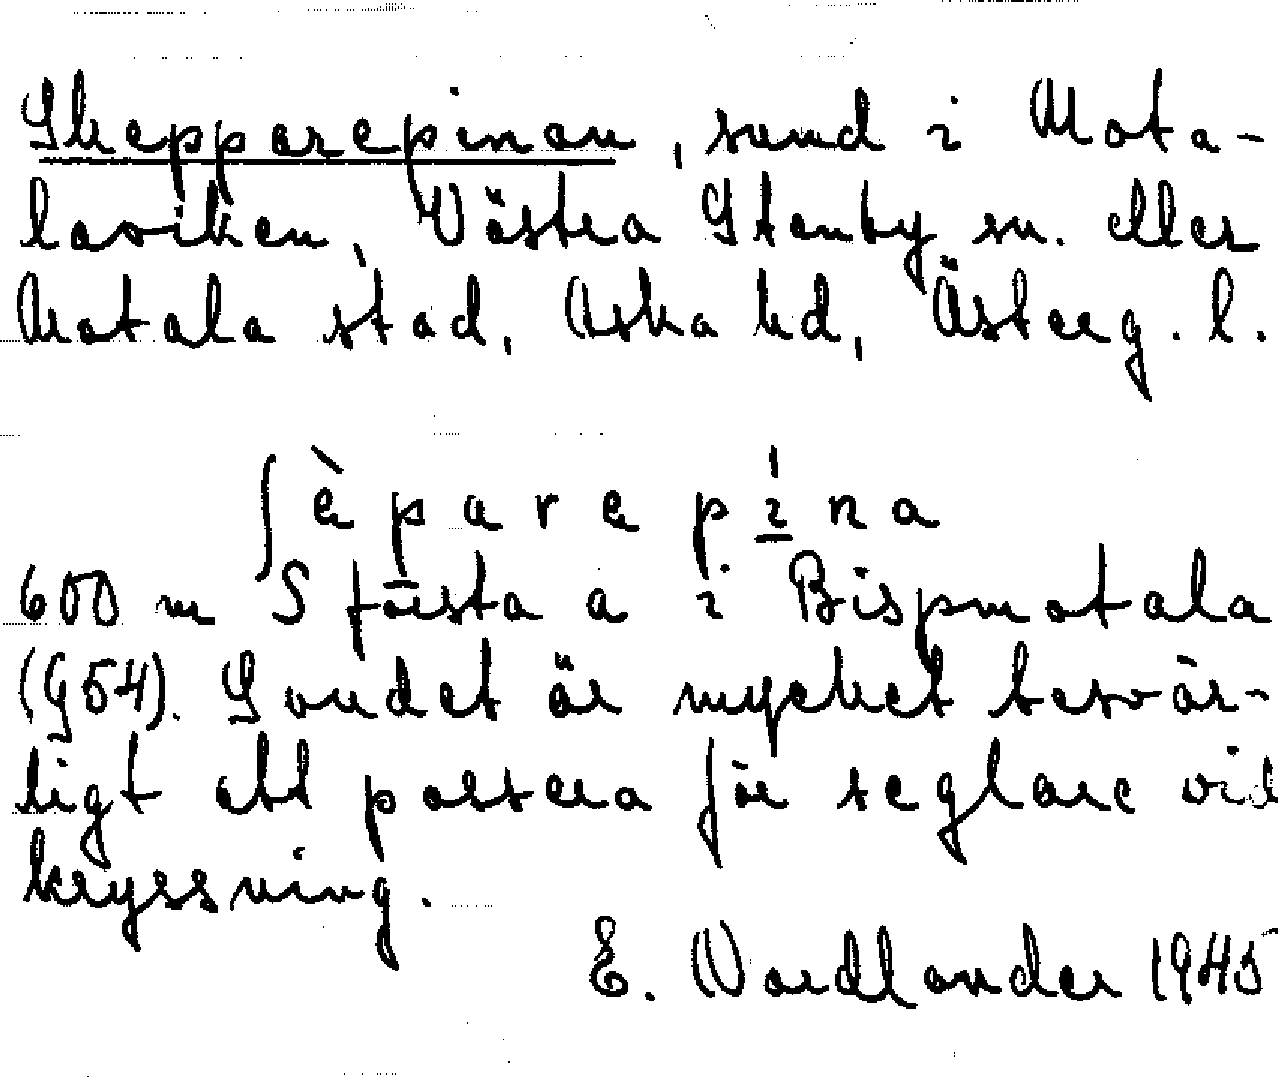 Skepparepinan, sund i Mota-
laviken, Västra Stenby sn. eller
Motala stad, Aska hd, Österg. l.
ʃèpare pína
600 m S första a i Bispmotala
(G54). Sundet är mycket besvär-
ligt att passera för seglare vid
kryssning.
E. Nordlander 1945